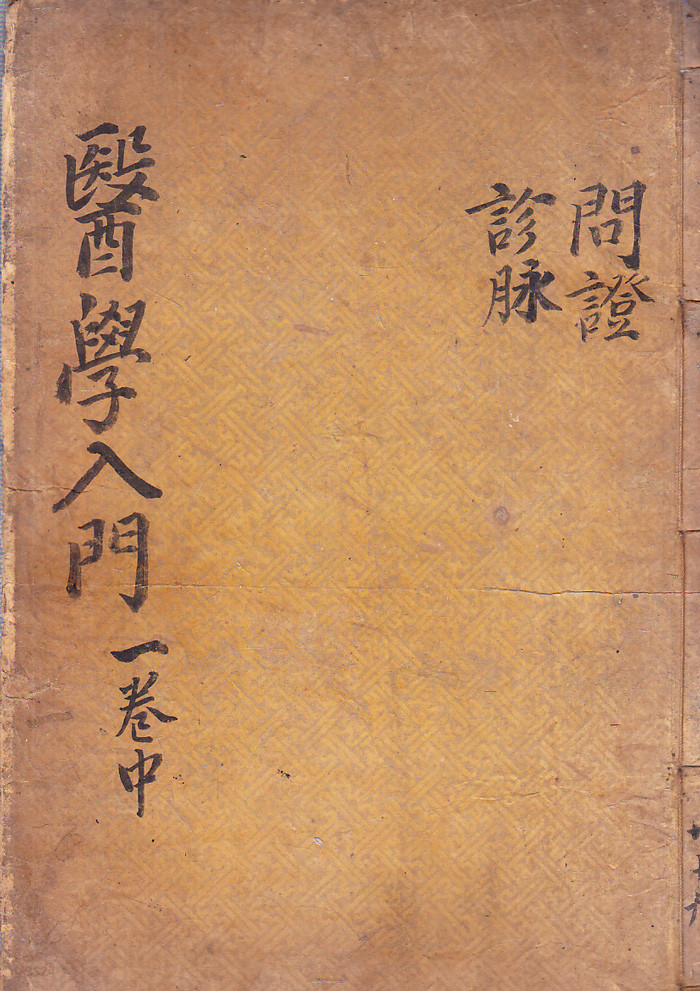 問證
診脉
醫學入門 一卷中